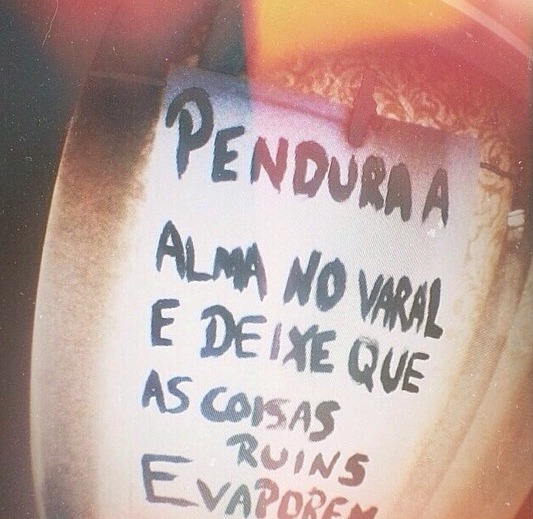 PENDURA A
ALMA NO VARAL
E DEIXE QUE
AS COISAS
RUINS
EVAPOREM